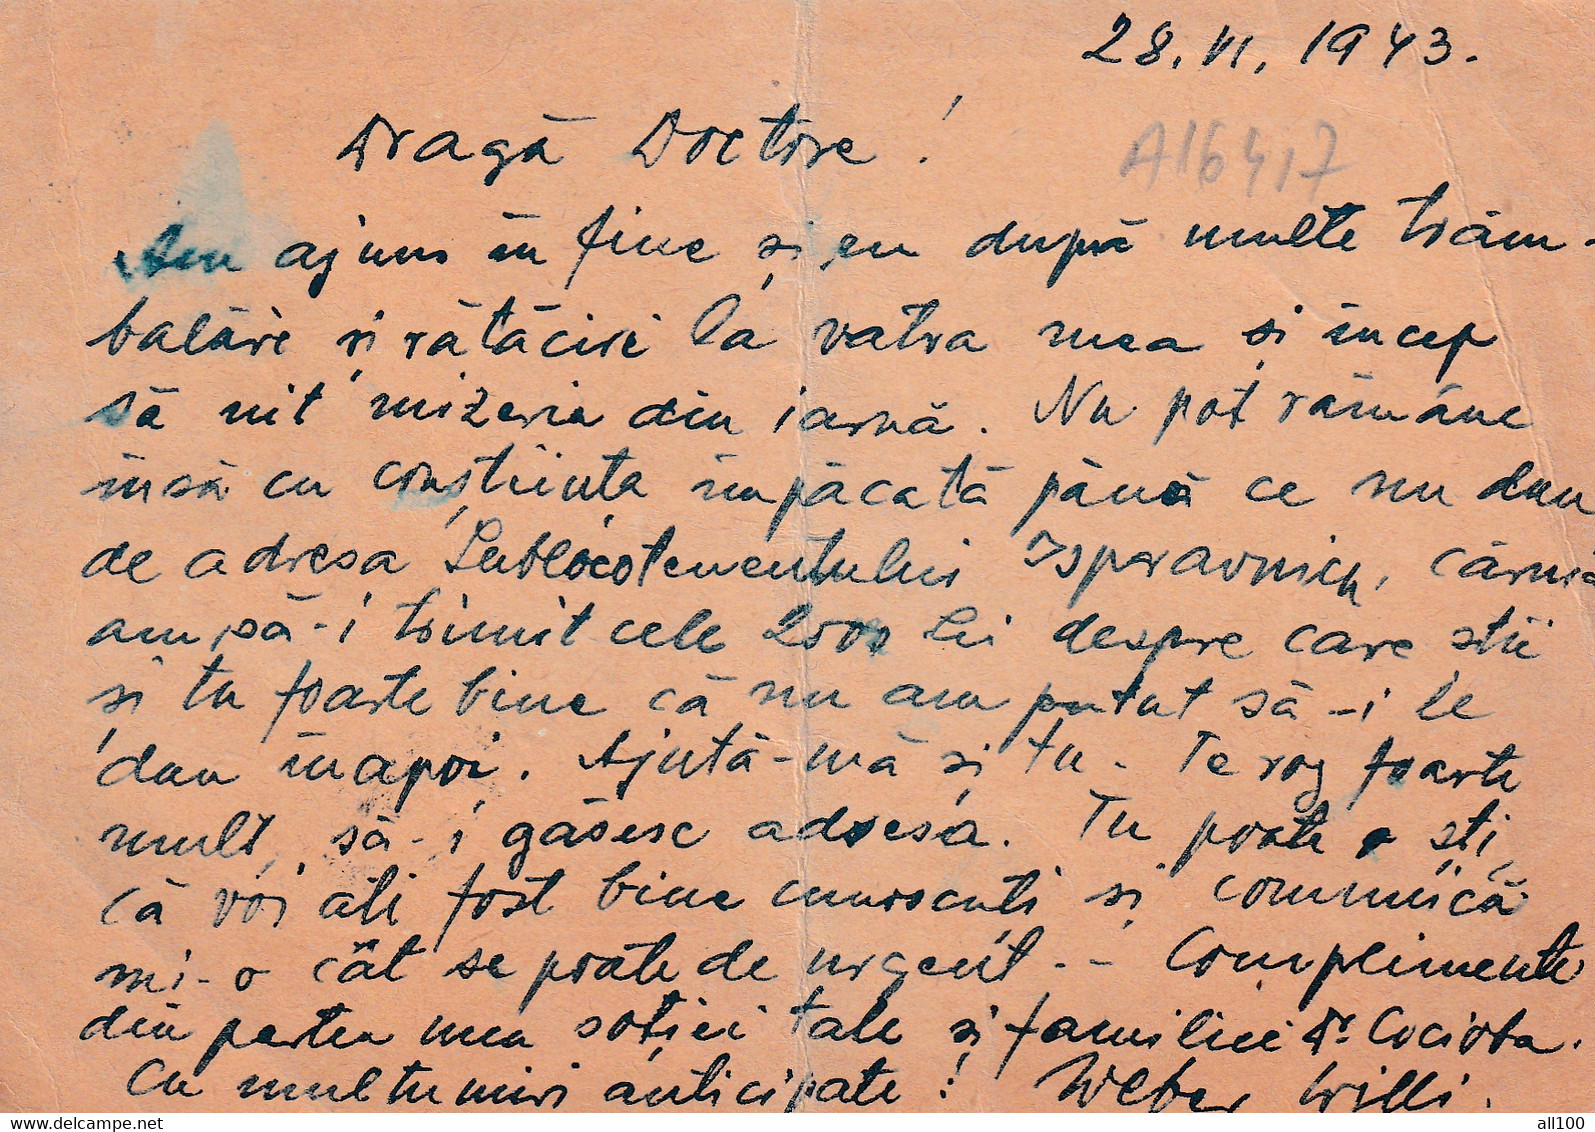 28. VI. 1943.
Dragă Doctore!
A16417
Am ajuns în fine și eu după multe trăm-
balări și rătăciri la vatra mea și încep
să uit mizeria din iarnă. Nu pot rămâne
însă cu conștiința împăcată până ce nu dau
de adresa Sublocotenentului Ispravnicu, căruia
am să-i trimit cele 2000 Lei despre care știi
și tu foarte bine că nu am putut să-i le
dau înapoi. Ajută-mă și tu. Te rog foarte
mult, să-i găsesc adresa. Tu poate o ști,
că voi ați fost bine cunoscuți și comunică
mi-o cât se poate de urgent. - Complimente
din partea mea soției tale și familiei Dr. Cocioba.
Cu mulțumiri anticipate! Weber Willi.
delcampe.net
all100